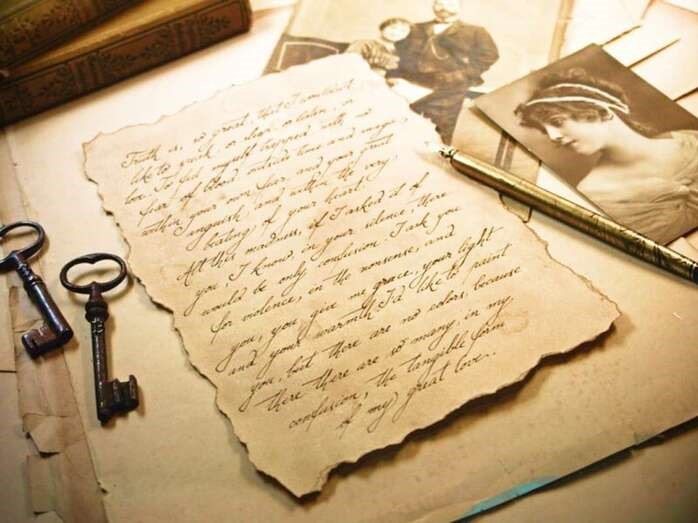 Truth is, so great, that I wouldn't
like to speak, or sleep or listen, or
love. To feel myself trapped with no
fear of blood outside time and magic,
within your own fear and your great
anguish and within the very
beating of your heart.
All this madness, if I asked it of
you, I know in your silence, there
would be only confusion. I ask you
for violence, in the nonsense, and
you, you give me grace, your light
and your warmth I'd like to paint
you, but there are no colors, because
there there are so many, in my
confusion, the tangible form
of my great love..